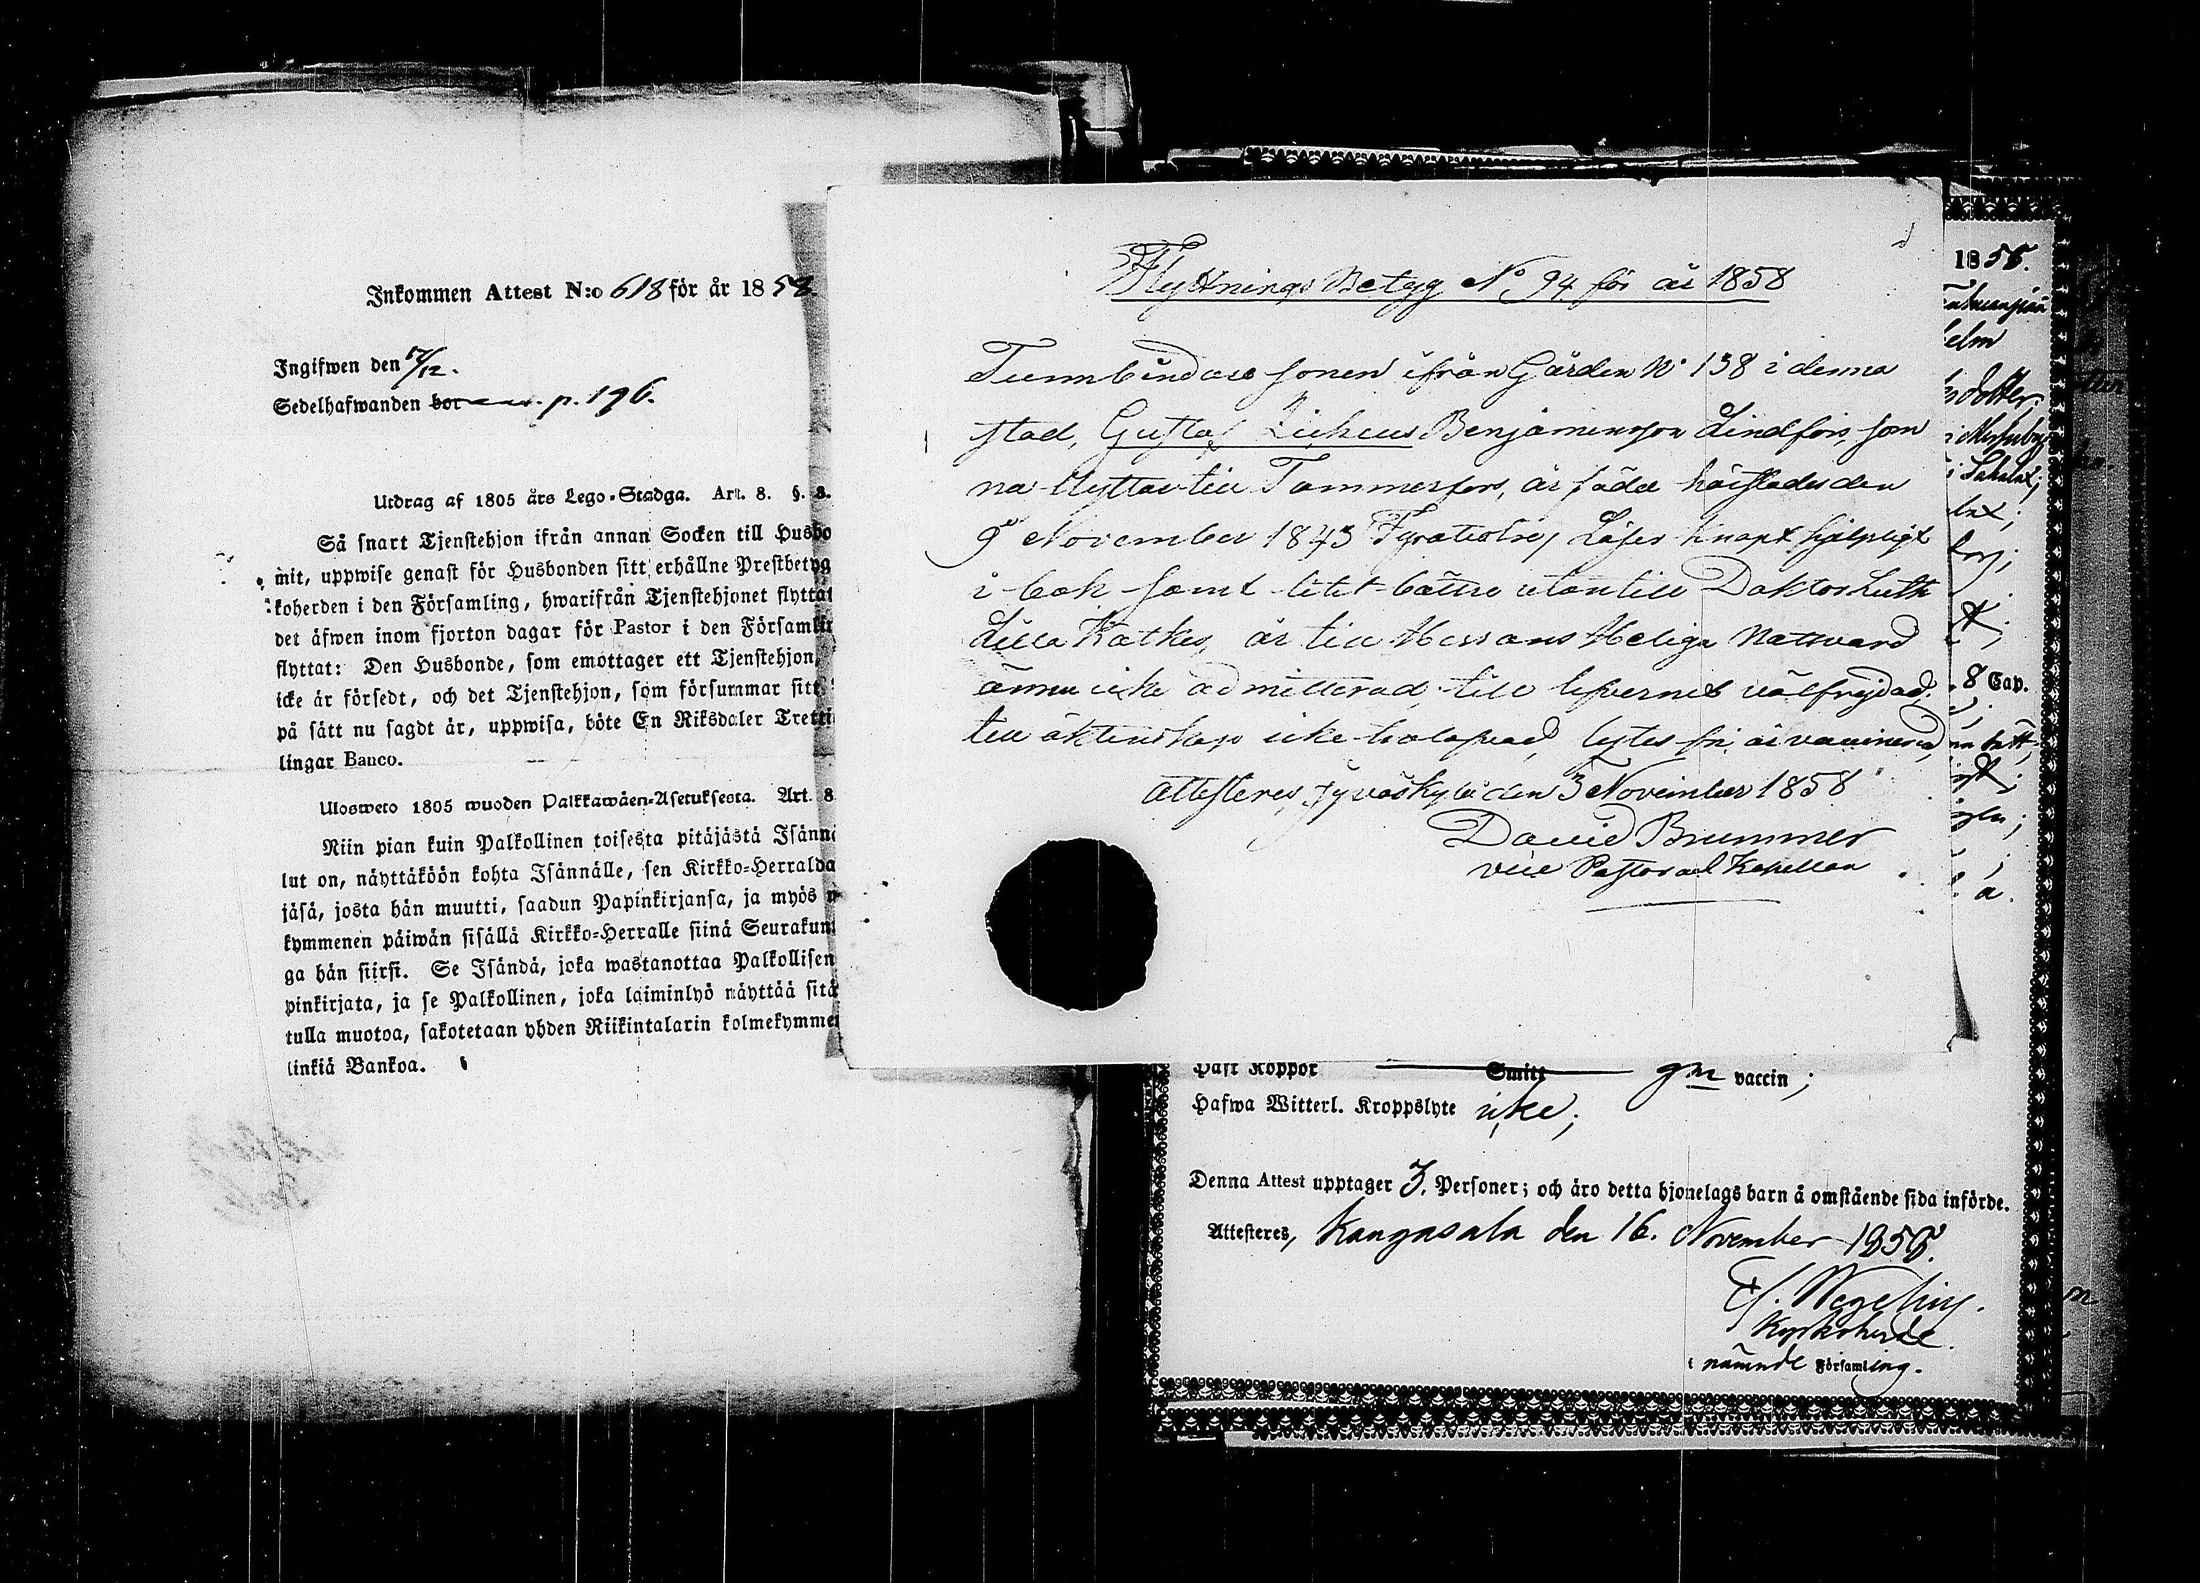 Inkommen Attest N:o 618 för år 1858.
Ingifwen den 17/12.
Sedelhafwanden p. 196.
Utdrag af 1805 års Lego-Stadga. Art. 8. §. 8.
Så snart Tjenstehjon ifrån annan Socken till Husbo
mit, uppwise genast för Husbonden sitt erhållne Prestbetyg
koherden i den Församling, hwarifrån Tjenstehjonet flyttat
det äfwen inom fjorton dagar för Pastor i den Församlin
flyttat: Den Husbonde, som emottager ett Tjenstehjon,
icke är försedt, och det Tjenstehjon, som försummar sitt
på sätt nu sagdt är, uppwisa, böte En Riksdaler Tretti
lingar Banco.
Ulosweto 1805 wuoden Palkkawäen-Asetuksesta. Art. 8
Niin pian kuin Palkollinen toisesta pitäjästä Isännä
lut on, näyttäköön kohta Isännälle, sen Kirkko-Herralda
jäsä, josta hän muutti, saadun Papinkirjansa, ja myös
kymmenen päiwän sisällä Kirkko-Herralle siinä Seurakun
ga hän siirsi. Se Isändä, joka wastanottaa Palkollisen
pinkirjata, ja se Palkollinen, joka laiminlyö näyttää sitä
tulla muotoa, sakotetaan yhden Riikintalarin kolmekymme
linkiä Bankoa.
Flyttnings Betyg No 94 för år 1858
Tunnbindare sonen ifrån Gården No 138 i denna
stad, Gustaf Benjaminsson Lindfors, som
nu flyttar till Tammerfors, är född härstädes den
9 November 1843 Fyratiotre, Läser knapt hjelpligt
i bok samt litet bättre utantill Doktor Luth
Lilla Katkes, är till Herrans Heliga Nattvard
ännu icke admitterad, till lefvernet välfrejdad,
till äktenskap icke lytes fri, är vaccinerad,
attesteres, Jyväskylä den 3 November 1858
David Brummer
vice Pastor ad Kapellan
1858.
elm
dotter;
i Sahalax;
lax;
8 Cap.
a.
Haft Koppor Smitt gm vaccin;
Hafwa Witterl. Kroppslyte icke;
Denna Attest upptager 3. Personer; och äro detta hjonelags barn å omstående sida införde.
Attesteres, Kangasala den 16. November 1858.
Kyrkoherde
i nämnde Församling.